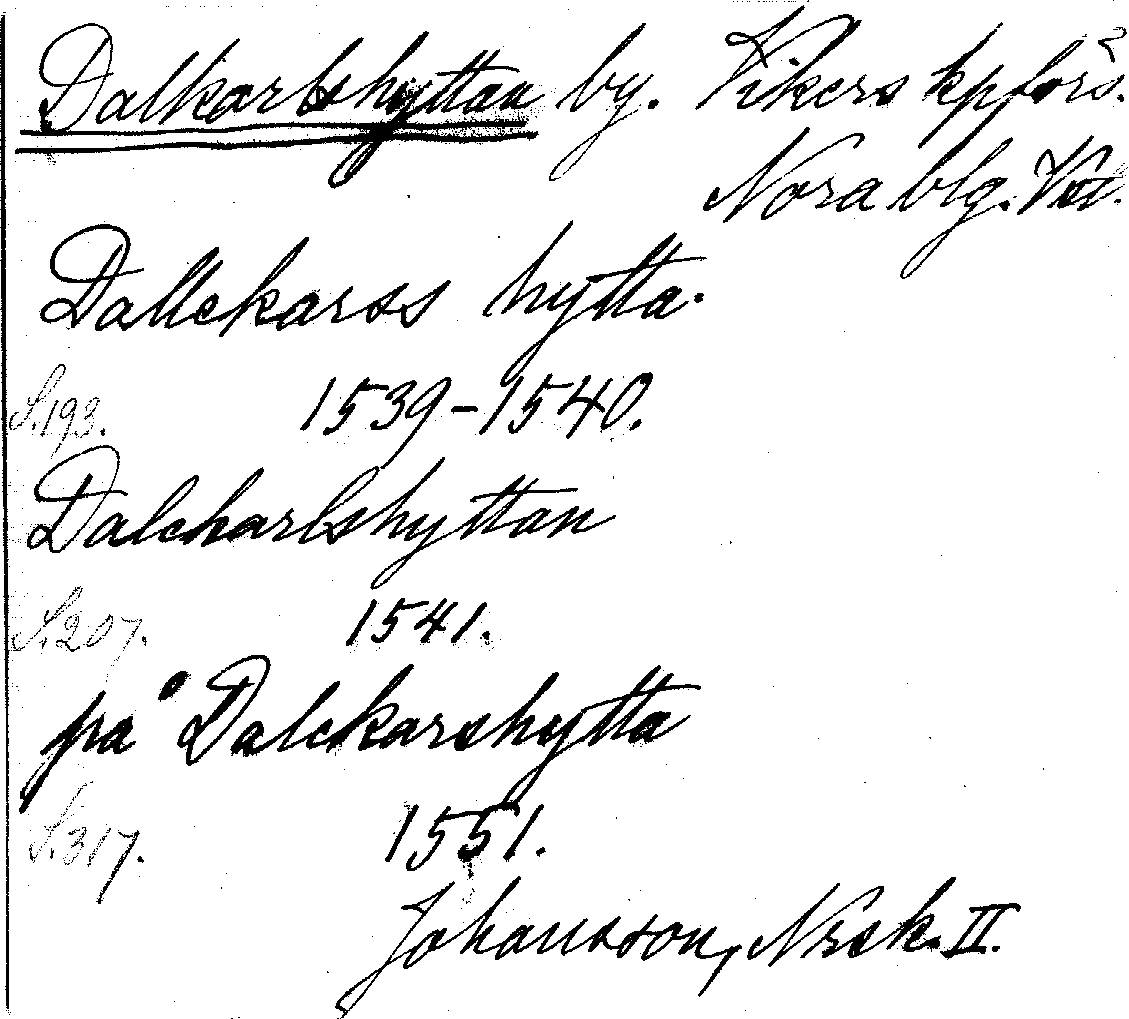 Dalkarlshyttan by. Vikers kpförs.
Nora blg. Vstm.
Dallekarss hytta.
S.193. 1539-1540.
Dalcharlshyttan
S.207. 1541.
på Dalckarshytta
S.317. 1551.
Johansson, Nrsk. II.